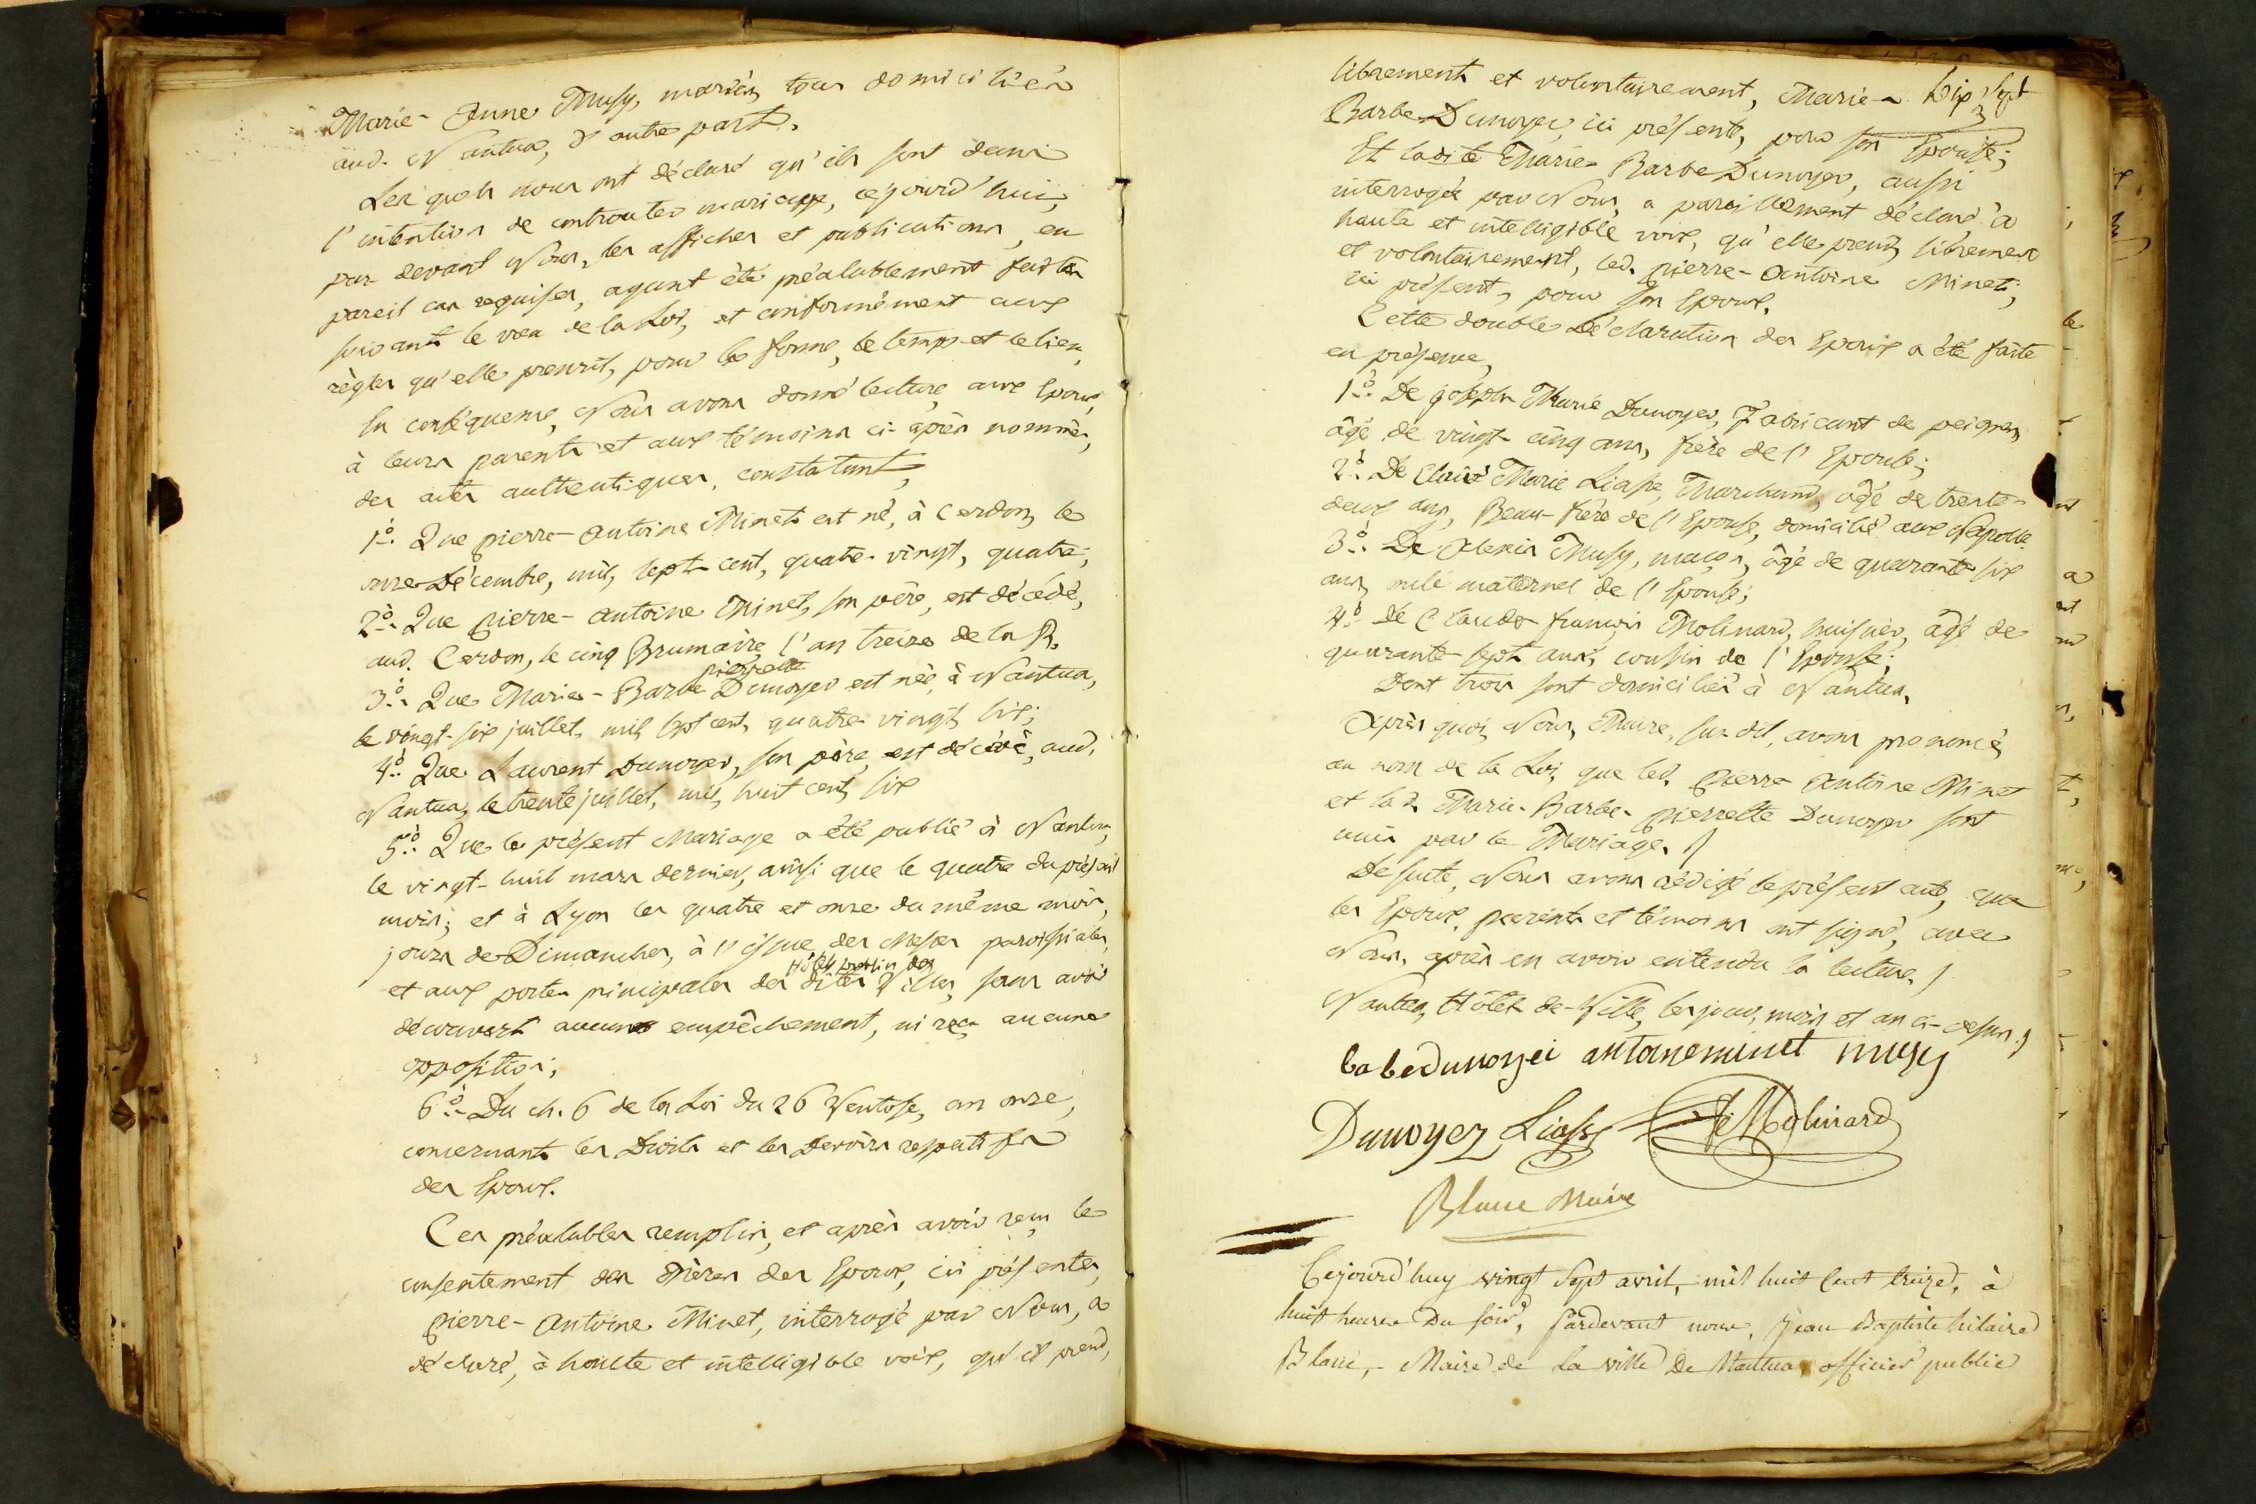 Marie-Anne Musy, mariés, tous domiciliés
aud. Nantua, d'autre part.
Lesquels nous ont déclaré qu'ils sont dans
l'intention de contracter mariage, cejourd'hui,
par devant Nous, les affiches et publications, en
pareil cas requises, ayant été préalablement faites
suivant le vœu de la Loi, et conformément aux
règles qu'elle prescrit, pour la forme, le temps et le lieu,
En conséquence, Nous avons donné lecture, aux Epoux,
à leurs parents et aux témoins ci-après nommés,
des actes authentiques, constatant,
1.° Que pierre-antoine Minet est né, à Cerdon, le
onze Décembre, mil, sept cent, quatre-vingt, quatre;
2.° Que pierre-antoine Minet, son père, est décédé,
aud. Cerdon, le cinq Brumaire l'an treize de la R.
pierrette
3.° Que Marie-Barbe Dunoyer est née, à Nantua,
le vingt-six juillet, mil sept cent, quatre-vingt, six;
4.° Que Laurent Dunoyer, son père, est décédé, aud.
Nantua, le trente juillet, mil, huit cent, six
5.° Que le présent Mariage a été publié à Nantua,
le vingt-huit mars dernier, ainsi que le quatre du présent
mois; et à Lyon les quatre et onze du même mois,
jours de Dimanches, à l'issue des Messes paroissiales,
des
et aux portes principales des dites Villes, sans avoir
découvert aucun empêchement, ni reçu aucune
opposition;
6.° Du ch. 6 de la Loi du 26 Ventose, an onze,
concernant les Droits et les Devoirs respectifs
des Epoux.
Ces préalables remplis, et après avoir reçu le
consentement des Mères des Epoux, ici présentes,
pierre-antoine Minet, interrogé par Nous, a
déclaré, à haute et intelligible voix, qu'il prend,
Dix sept
librement et volontairement, Marie-
Barbe Dunoyer, ici présente, pour son Epouse;
Et ladite Marie-Barbe Dunoyer, aussi
interrogée par Nous, a pareillement déclaré à
haute et intelligible voix, qu'elle prend, librement
et volontairement, led. pierre-antoine Minet,
ici présent, pour son Epoux.
Cette double Déclaration des Epoux a été faite
en présence,
1.° De joseph Marie Dunoyer, Fabricant de peignes,
âgé de vingt-cinq ans, frère de l'Epouse;
2.° De Claude Marie Liasse, Marchand, âgé de trente-
deux ans, Beau-frère de l'Epouse, domicilié aux
3.° De alexis Musy, maçon, âgé de quarante six
ans, oncle maternel de l'Epouse;
4.° De Claude françois Molinard, huissier, âgé de
quarante sept ans, cousin de l'Epouse;
Dont trois sont domiciliés à Nantua,
Après quoi, Nous, Maire, susdit, avons prononcé,
au nom de la Loi, que led. pierre antoine Minet
et lad. Marie-Barbe-pierrette Dunoyer sont
unis par le Mariage.
De suite, Nous avons rédigé le présent acte, que
les Epoux, parents et témoins ont signé, avec
Nous, après en avoir entendu la lecture.
Nantua, Hôtel-de-Ville, les jour, mois et an ci-dessus.
babe dunoyei antoneminet musy
Dunoyer Liasse Molinard
Blanc Maire
Cejourd'huy vingt sept avril, mil huit cent treize, à
huit heures Du soir, pardevant nous, Jean Baptiste hilaire
Blanc, Maire de La ville De Nantua, officier public